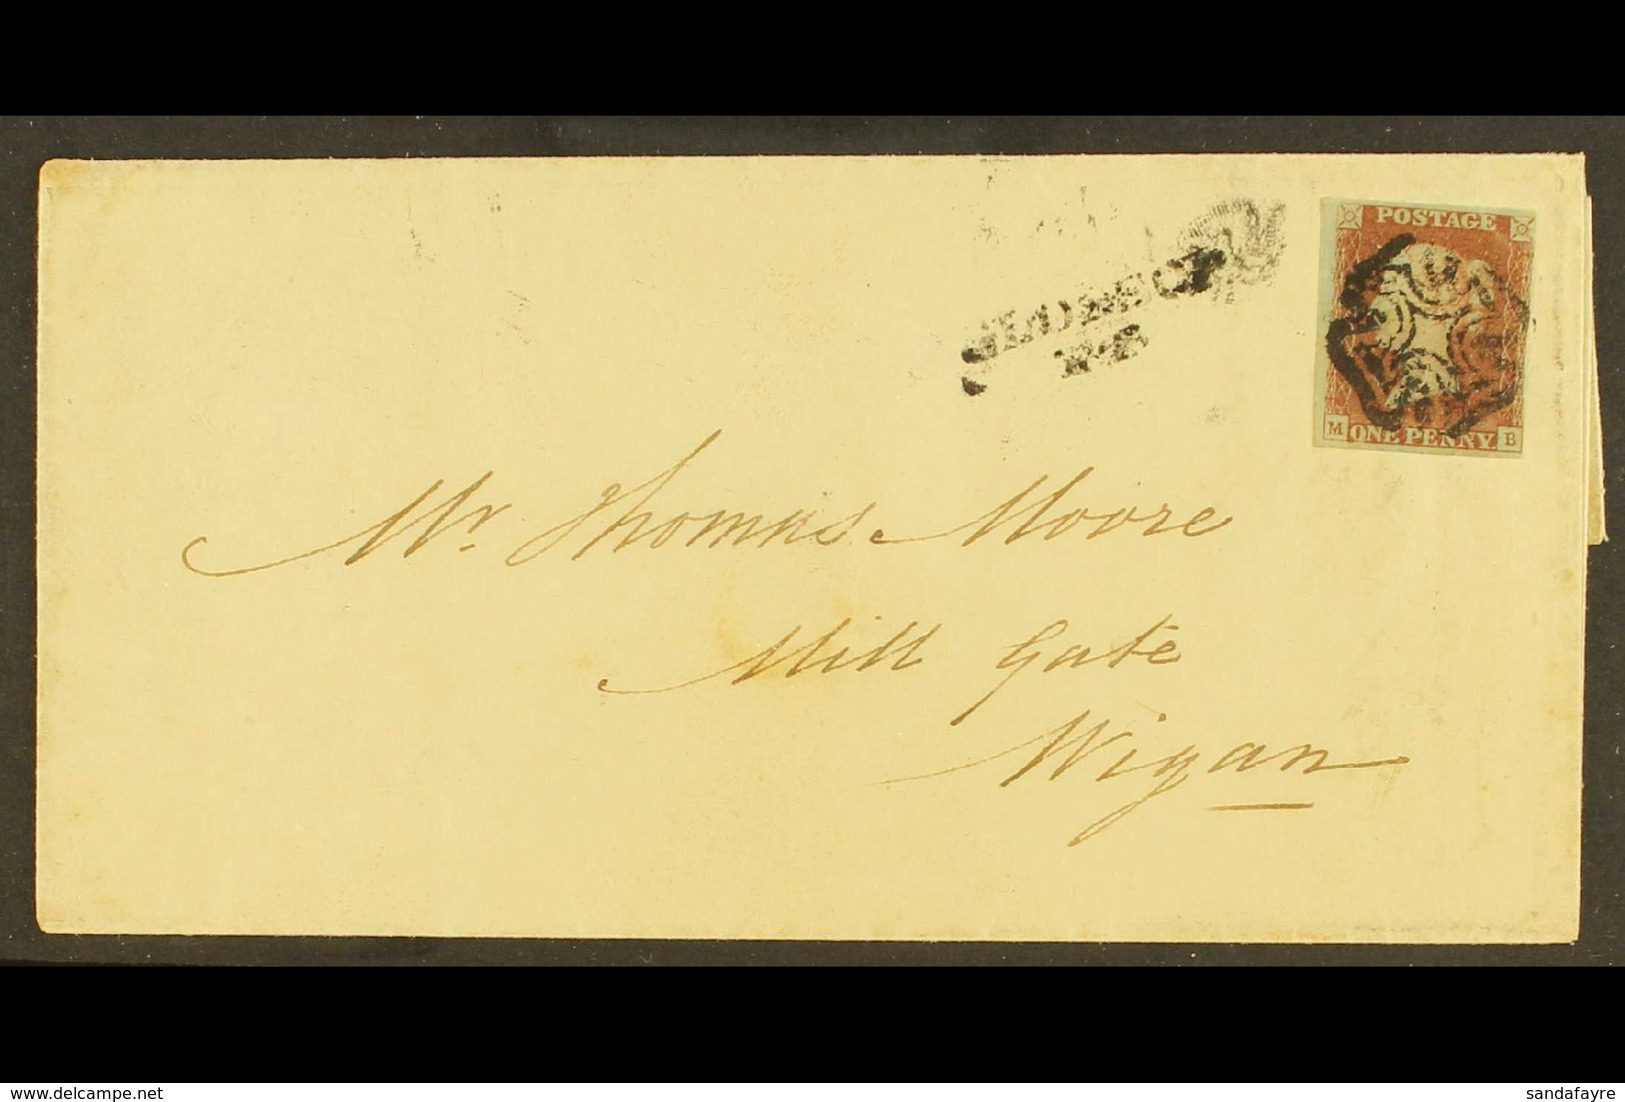 POSTAGE
M ONE PENNY. B
Mr. Thomas Moore
Mill Gate
Wigan
www.delcampe.net
sandafayre